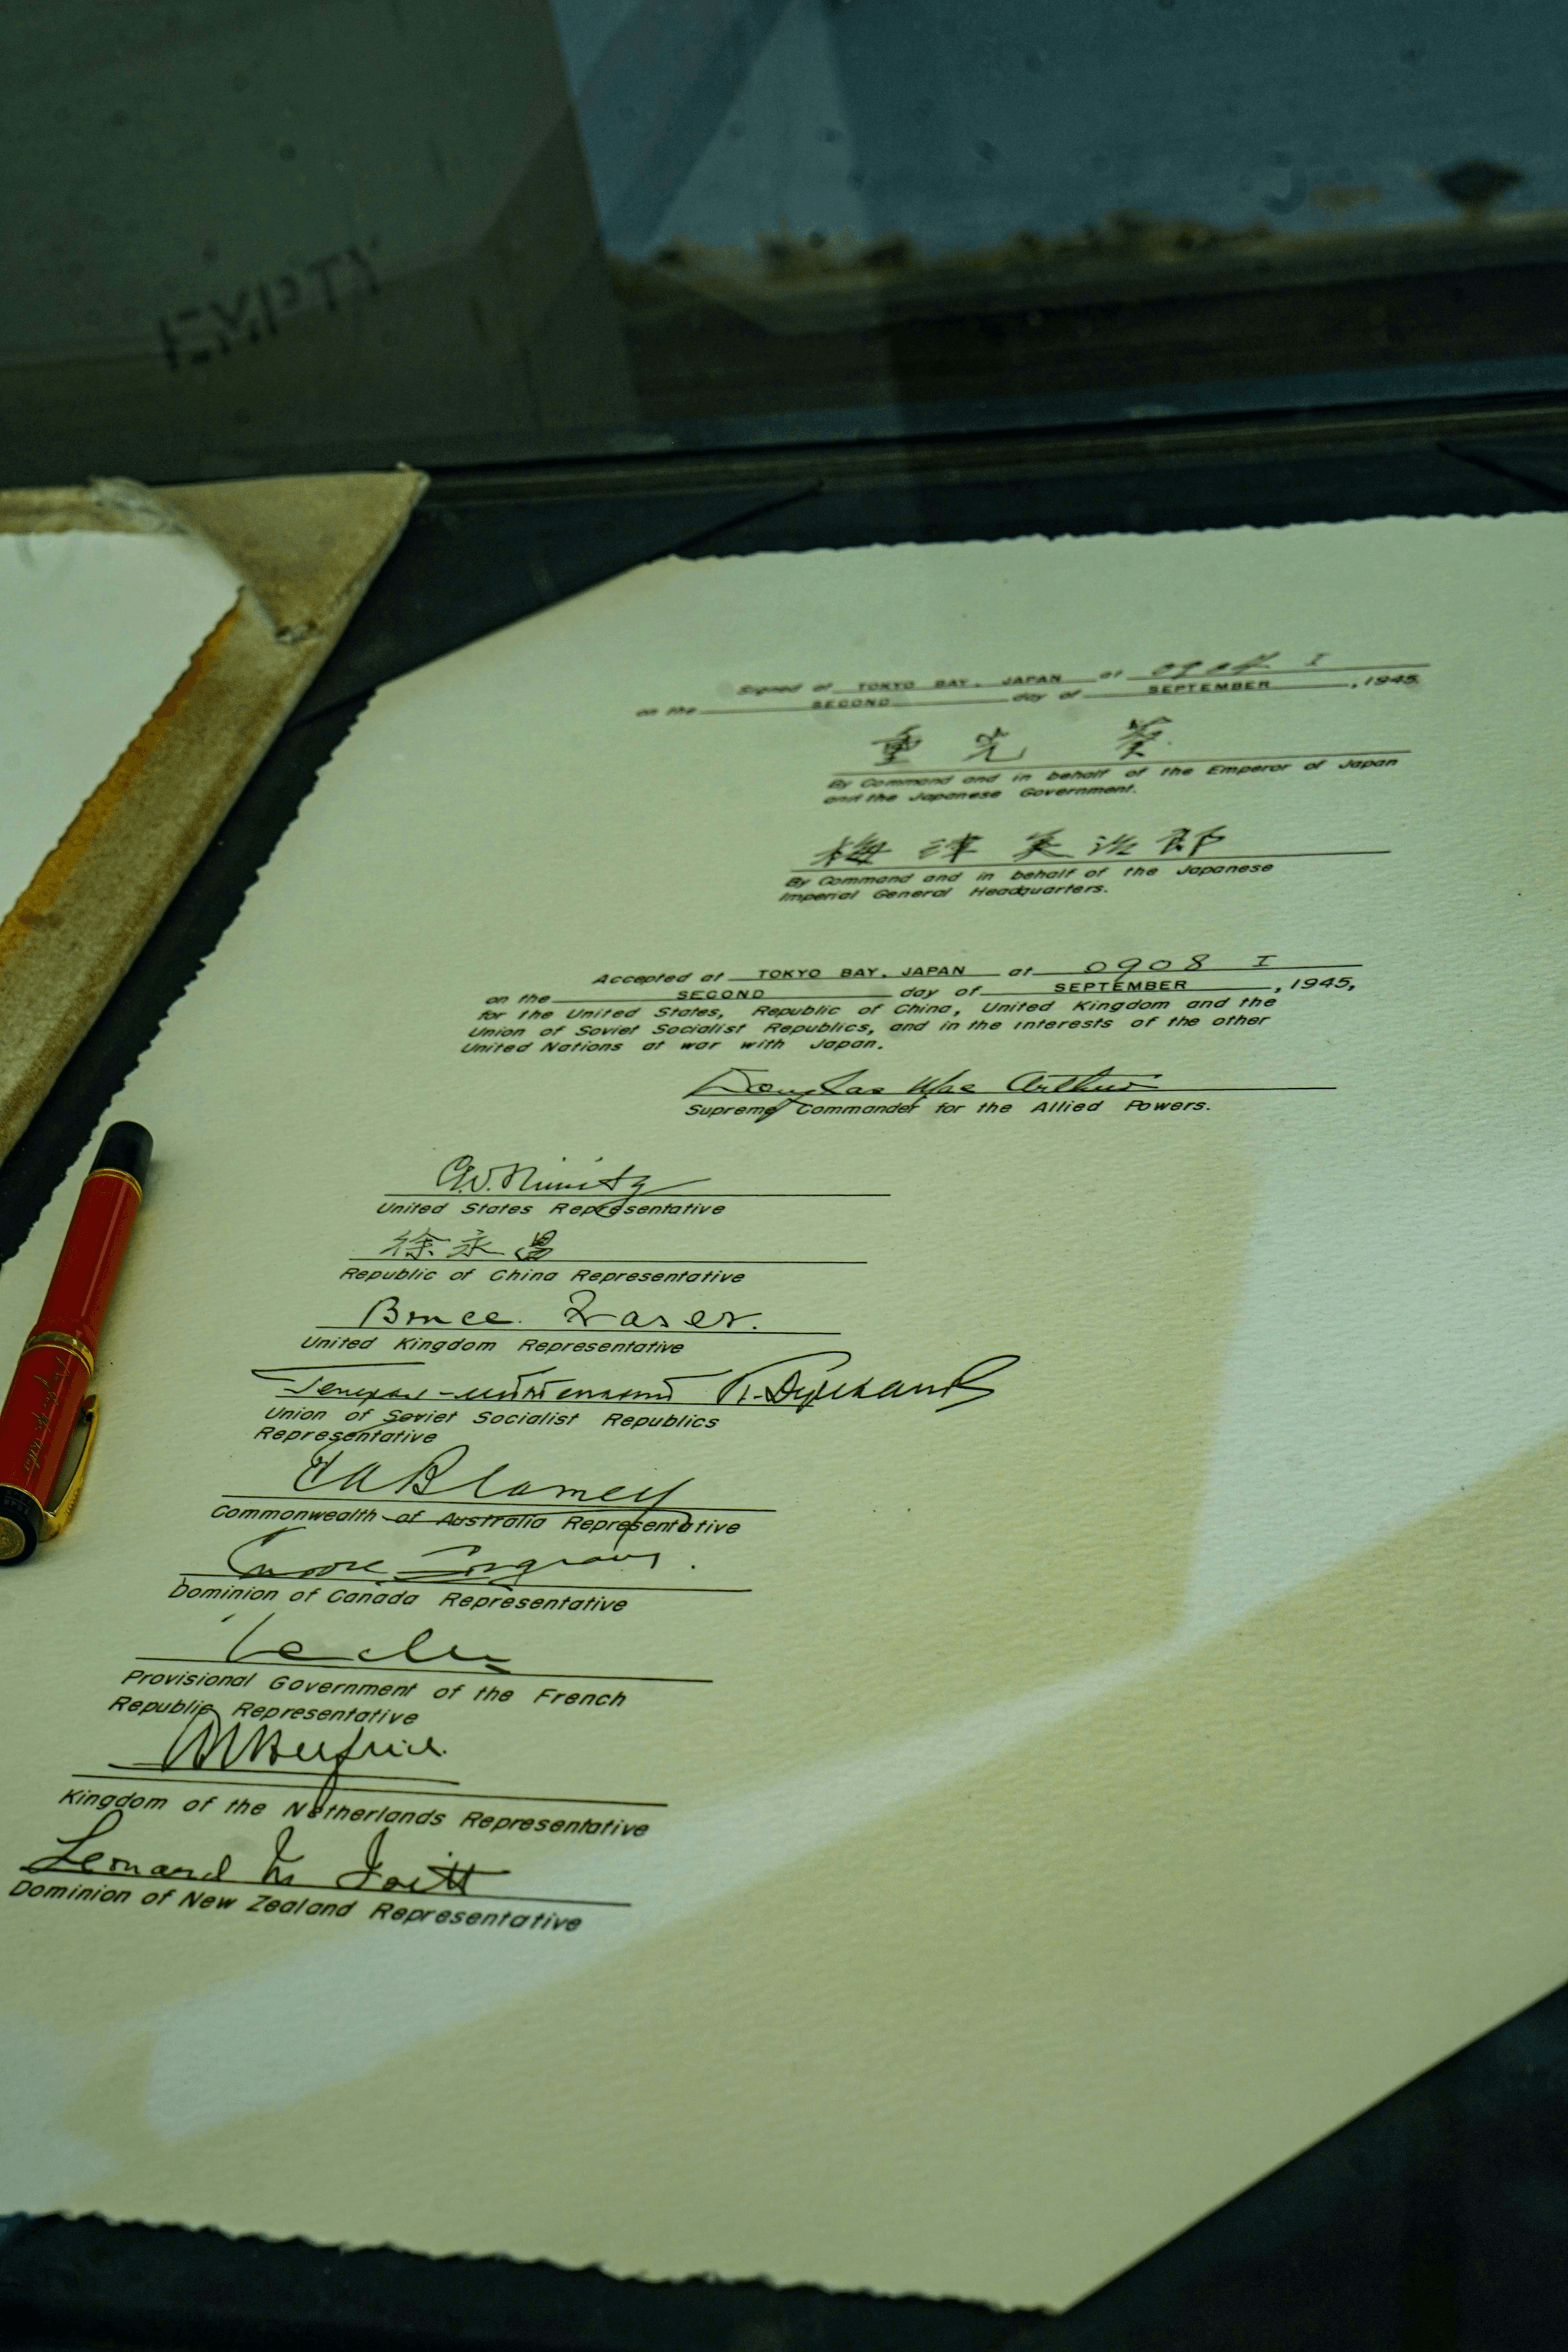 EMPTY
Signed at TOKYO BAY, JAPAN at 0904 I
on the SECOND day of SEPTEMBER, 1945
重光 葵
By Command and in behalf of the Emperor of Japan
and the Japanese Government.
梅津美治郎
By Command and in behalf of the Japanese
Imperial General Headquarters.
Accepted at TOKYO BAY, JAPAN at 0908 I
on the SECOND day of SEPTEMBER, 1945,
for the United States, Republic of China, United Kingdom and the
Union of Soviet Socialist Republics, and in the interests of the other
United Nations at war with Japan.
Douglas MacArthur
Supreme Commander for the Allied Powers.
C.W. Nimitz
United States Representative
徐永昌
Republic of China Representative
Bruce Fraser.
United Kingdom Representative
Union of Soviet Socialist Republics
Representative
T A Blamey
Commonwealth of Australia Representative
Dominion of Canada Representative
Provisional Government of the French
Republic Representative
Kingdom of the Netherlands Representative
Leonard M Isitt
Dominion of New Zealand Representative